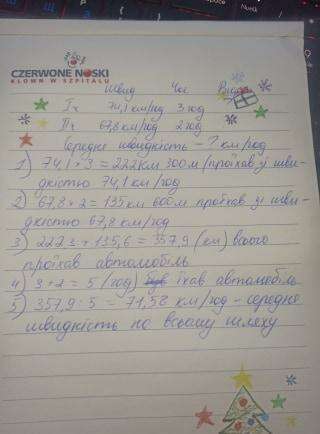 CZERWONE NOSKI
KLOWN W SZPITALU
Швид Час Відст
Iч 74,1 км/год 3 год
IIч 67,8 км/год 2 год
Середня швидкість - ? км/год
1) 74,1 · 3 = 222 км 300 м /проїхав зі шви-
дкістю 74,1 км/год
2) 67,8 · 2 = 135 км 600 м проїхав зі шви-
дкістю 67,8 км/год
3) 222,3 + 135,6 = 357,9 (км) всього
проїхав автомобіль
4) 3 + 2 = 5 (год) їхав автомобіль
5) 357,9 : 5 = 71,58 км/год - середня
швидкість на всьому шляху